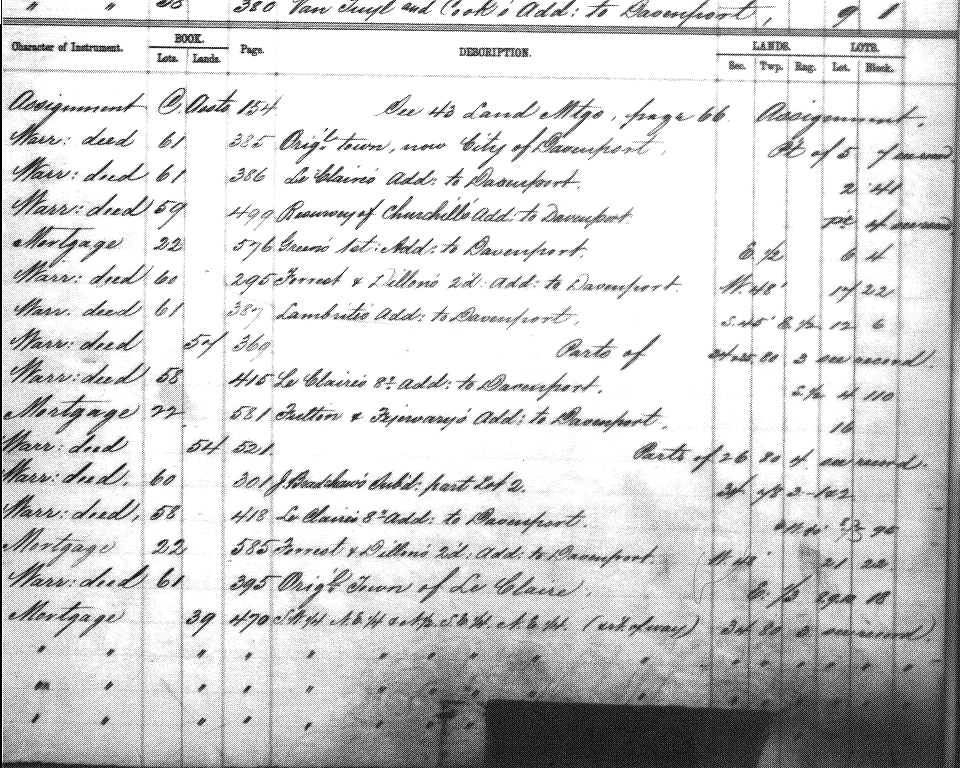 " " 380 Van Tuyl and Cook's Add: to Davenport, 9 1
Character of Instrument. BOOK. Page. DESCRIPTION. LANDS. LOTS.
Lots. Lands. Sec. Twp. Rng. Lot. Block.
Assignment 154 See 43 Land Mtgs, page 66. Assignment.
Warr: deed 61 385 Orig'l town, now City of Davenport, Pt of 5 7 see record
Warr: deed 61 386 Le Claire's Add: to Davenport. 2 41
Warr: deed 59 499 Resurvey of Churchill's Add: to Davenport. 4 see record
Mortgage 22 576 Green's 1st: Add: to Davenport. E 1/2 6 4
Warr: deed 60 295 Forrest & Dillon's 2'd: Add: to Davenport. W. 48' 17 22
Warr. deed 61 387 Lambrite's Add: to Davenport. S. 45' E. 1/2 12 6
Warr: deed 54 369 Parts of 80 3 see record.
Warr: deed 58 415 Le Claire's 8th Add: to Davenport. S. 1/2 4 110
Mortgage 22 581 Fulton & Fejervary's Add: to Davenport. 16
Warr: deed 54 521. Parts of 26 80 4. see record.
Warr: deed. 60 301 J. Bradshaw's Subd: part Lot 2. 34 78 3 1&2
Warr: deed, 58 418 Le Claire's 8th Add: to Davenport. 95
Mortgage 22 585 Forrest & Dillon's 2'd: Add: to Davenport. W. 48' 21 22
Warr: deed 61 395 Orig'l Town of Le Claire. E. 1/3 18
Mortgage 39 470 S.W. 1/4 N.E. 1/4 & N 1/2 S.E. 1/4 N.E. 1/4. (ex rt. of way) 34 80 3 see record.
" " " " " " " " " " " " " " "
" " " " " " " " " " " " "
" " " " " " "